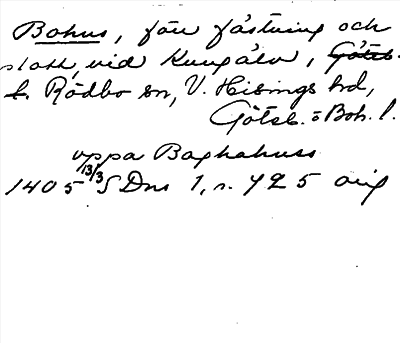 Bohus, förr fästning och
slott, vid Kungälv, Göteb.
L. Rödbo sn, V. Hisings hd,
Göteb. o Boh. l.
uppa Baghahuss
1405 13/3 SDns 1, n. 725 orig